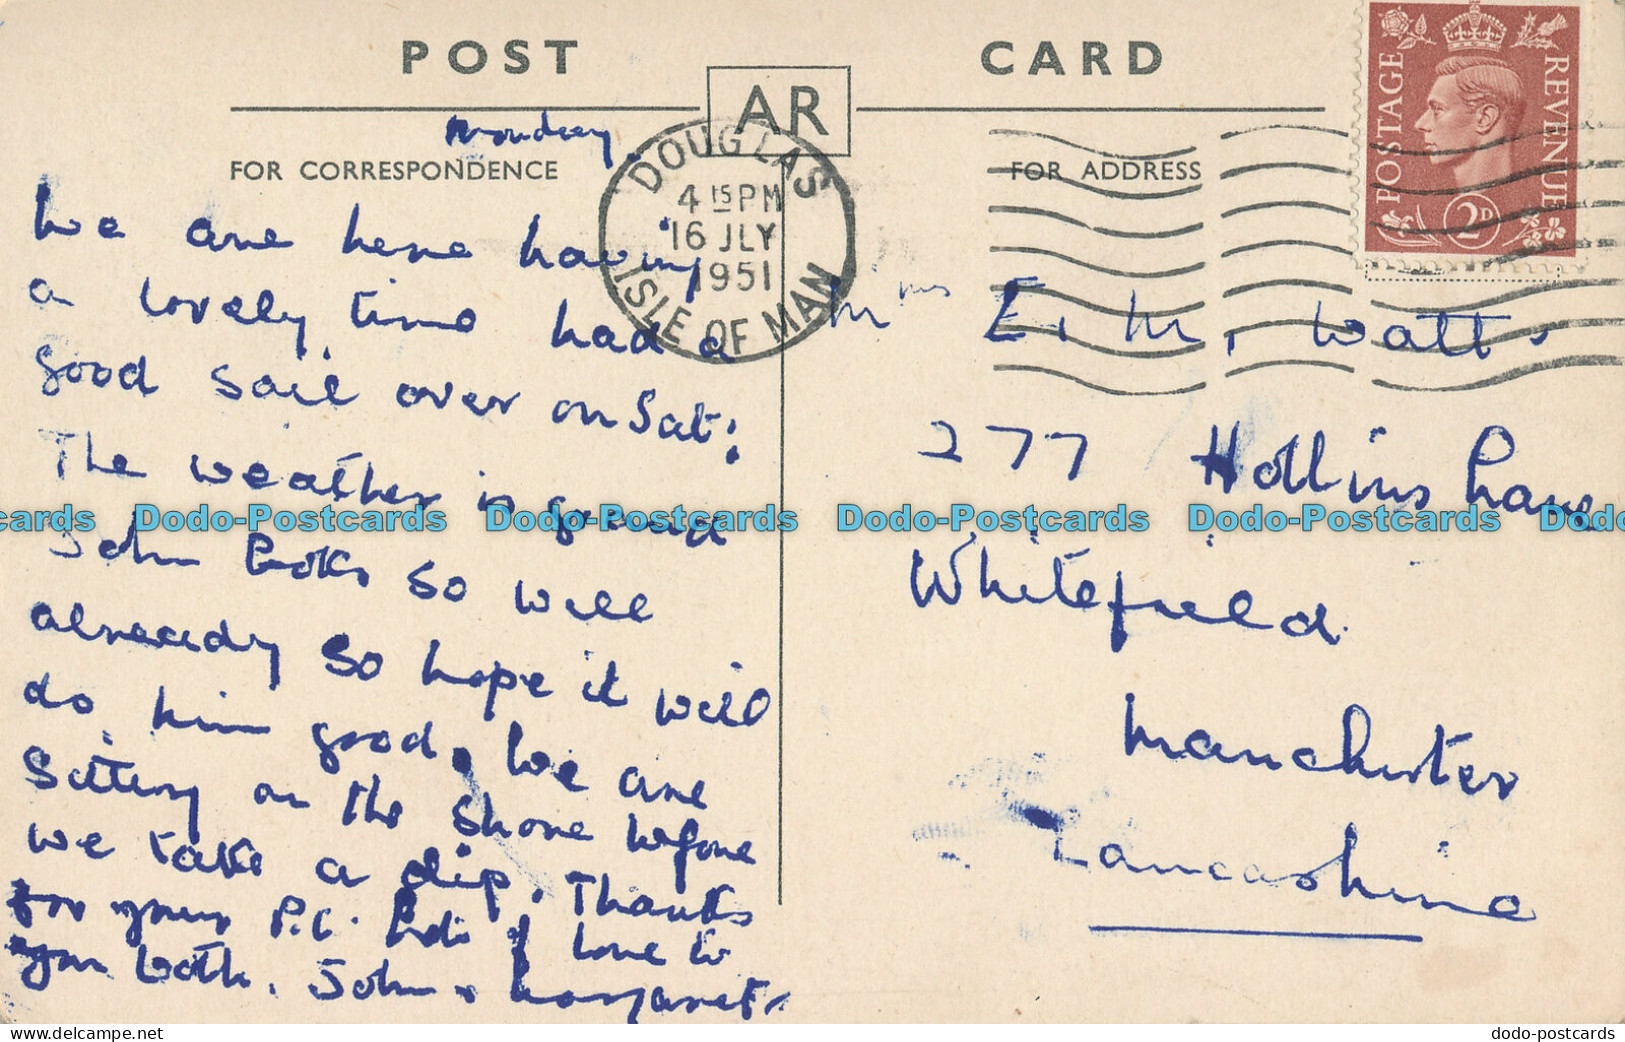 POST CARD
AR
FOR CORRESPONDENCE
Monday.
FOR ADDRESS
DOUGLAS
4 15 PM
16 JLY
1951
ISLE OF MAN
POSTAGE REVENUE
2D
We are here having
a lovely time had a
good sail over on Sat:
The weather is grand
John looks so well
already so hope it will
do him good. We are
sitting on the shore before
we take a dip. Thanks
for your P.C. love to
you both. John & Margaret.
Mrs E. M. Watts
277 Hollins Lane
Whitefield
Manchester
Lancashire
cards Dodo-Postcards Dodo-Postcards Dodo-Postcards Dodo-Postcards Dodo
dodo-postcards.com
dodo-postcards